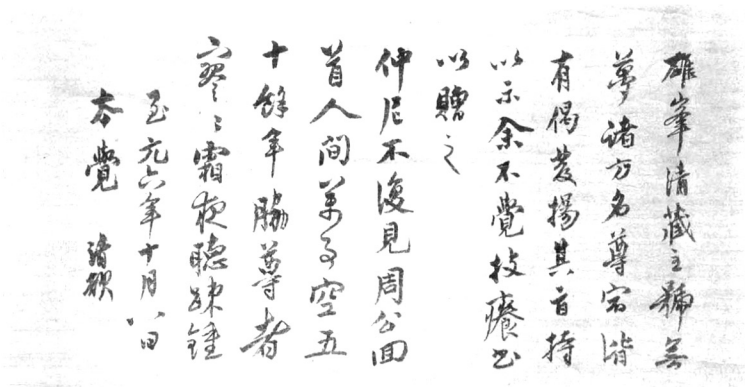 雄峯清藏主號無
夢諸方名尊宿皆
有偈發揚其旨持
以示余不覺技癢書
以贈之
仲尼不復見周公回
首人間萬事空五
十餘年脇尊者
寥寥霜夜聽踈鍾
至元六年十月八日
本覺 清欲